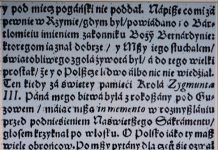 y pod miecz pogański nie poddał. Nápiśże comi zá
pewnie w Rzymie/gdym był/powiadano: o Bar-
tłomieiu imieniem zakonniku Boży Bernárdynie
ktoregom ia znał dobrze / y Mszy iego słuchałem/
świątobliwego zgołá żywotá był/ á do tego wielki
prostak/ że y o Polszcze ledwo álbo nic nie wiedział.
Ten kiedy zá świetey pámięci Krolá Zygmuntá
III. Páná mego bitwá byłá z rokoßány/ pod Gu-
zowem / máiąc mßą in memento w rozmyślániu
przed podniesieniem Naświętßego Sákrámentu/
głosem krzyknął po włosku. O Polsko iáko ty maß
wiele obrońcow.